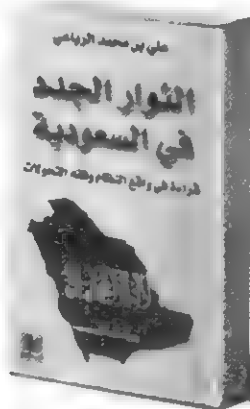 علي بن محمد الرباعي
الثوار الجدد
في السعودية
قراءة في واقع النظام وفقه التحولات